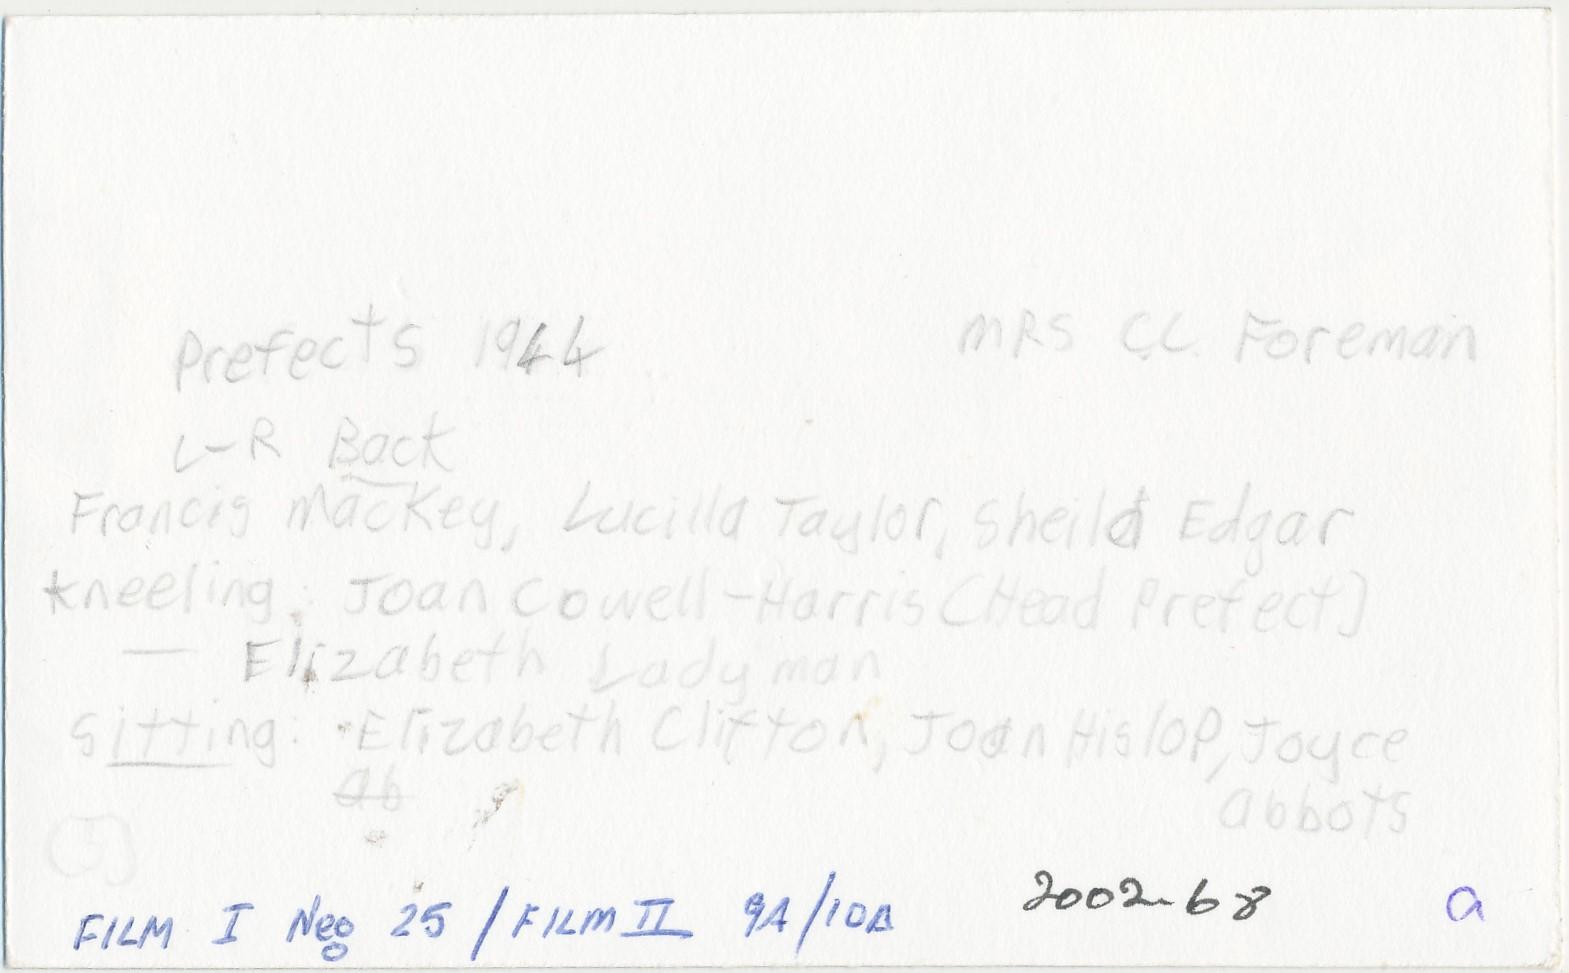 Prefects 1944 MRS C.C. Foreman
L-R Back
Francis Mackey, Lucilla Taylor, Sheila Edgar
kneeling: Joan Cowell-Harris (Head Prefect)
— Elizabeth Ladyman
Sitting: Elizabeth Clifton, Joan Hislop, Joyce
ab abbots
(3)
FILM I Neg 25 / FILM II 9A/10A 2002-68 a